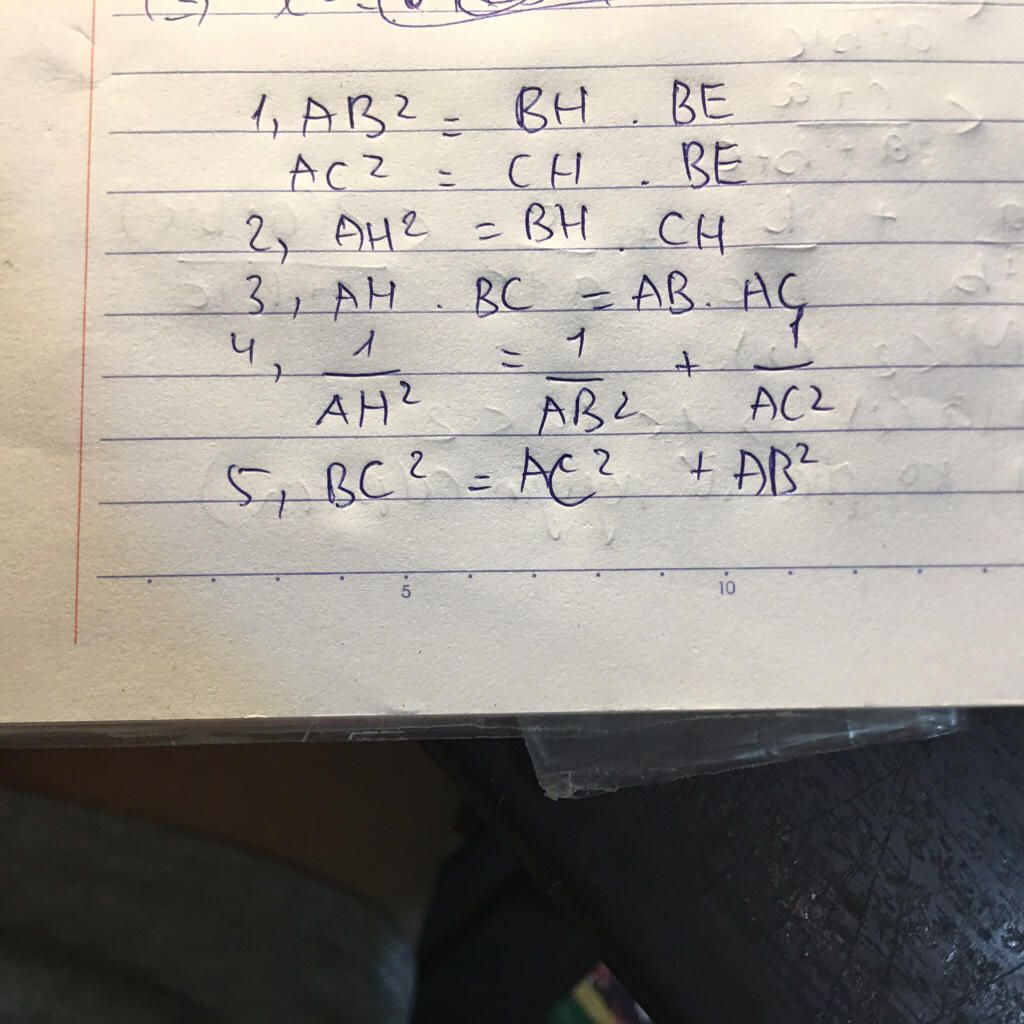 1, AB² = BH . BE
AC² = CH . BE
2, AH² = BH . CH
3, AH . BC = AB . AC
4, 1/AH² = 1/AB² + 1/AC²
5, BC² = AC² + AB²
5 10